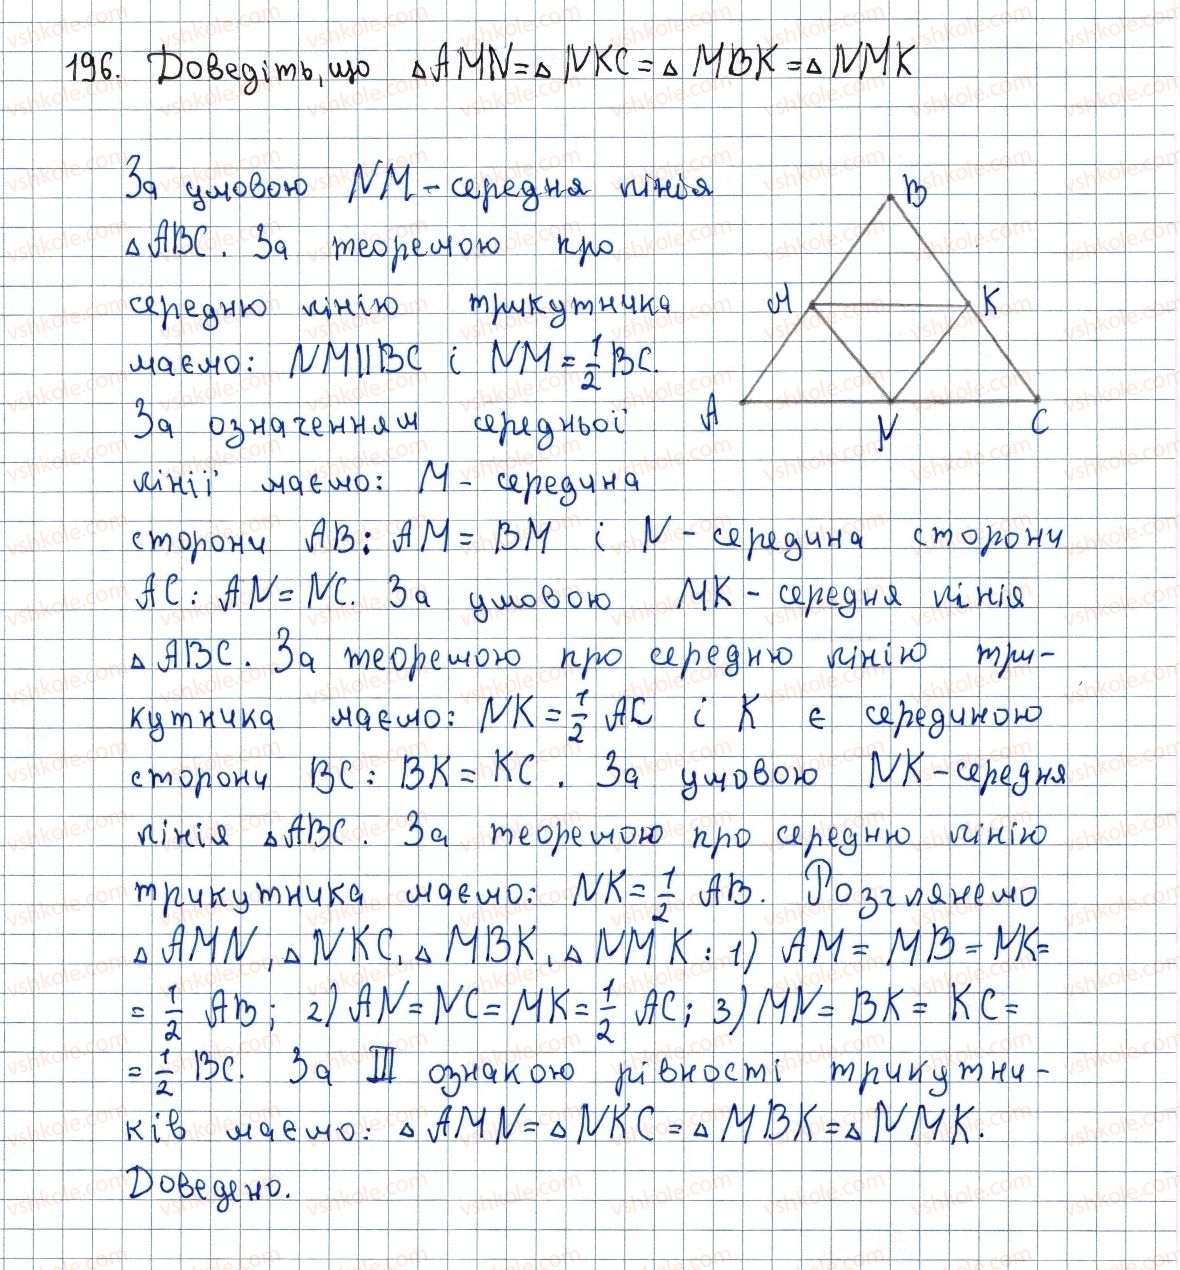 196. Доведіть, що △AMN=△NKC=△MBK=△NMK
За умовою NM - середня лінія
△ABC. За теоремою про
середню лінію трикутника
маємо: NM||BC і NM=1/2 BC.
За означенням середньої
лінії маємо: M - середина
сторони AB: AM = BM і N - середина сторони
AC: AN=NC. За умовою MK - середня лінія
△ABC. За теоремою про середню лінію три-
кутника маємо: NK=1/2 AC і K є серединою
сторони BC: BK=KC. За умовою NK-середня
лінія △ABC. За теоремою про середню лінію
трикутника маємо: NK=1/2 AB. Розглянемо
△AMN, △NKC, △MBK, △NMK: 1) AM = MB = NK=
=1/2 AB; 2) AN=NC=MK=1/2 AC; 3) MN=BK=KC=
=1/2 BC. За III ознакою рівності трикутни-
ків маємо: △AMN=△NKC=△MBK=△NMK.
Доведено.
B
M
K
A
N
C
vshkole.com